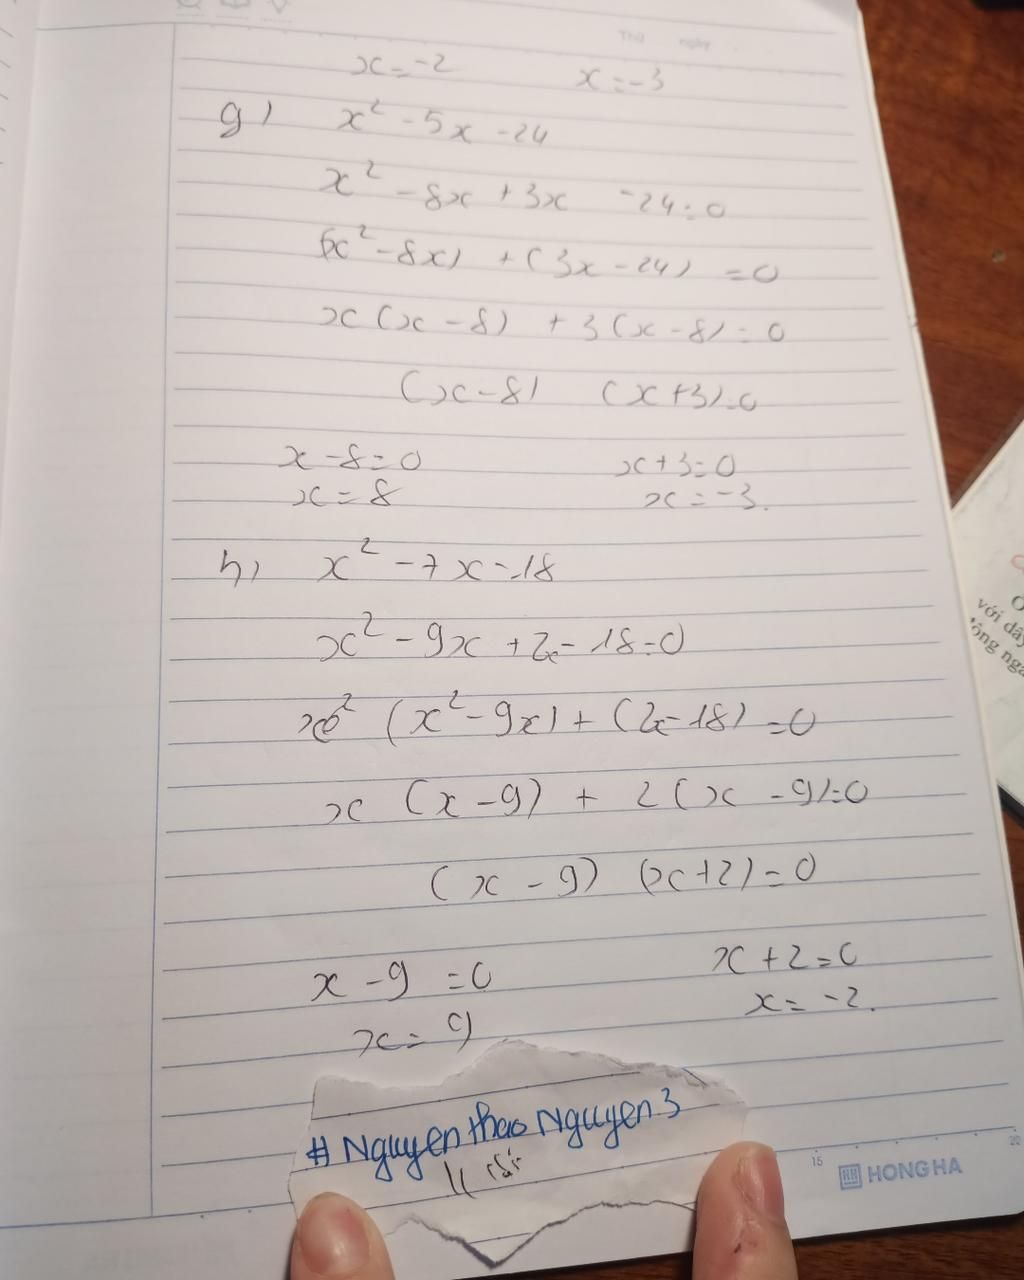 Thứ ngày
x = -2 x = -3
g) x² - 5x - 24
x² - 8x + 3x - 24 = 0
(x² - 8x) + (3x - 24) = 0
x (x - 8) + 3 (x - 8) = 0
(x - 8) (x + 3) = 0
x - 8 = 0 x + 3 = 0
x = 8 x = -3.
h) x² - 7x - 18
x² - 9x + 2x - 18 = 0
(x² - 9x) + (2x - 18) = 0
x (x - 9) + 2 (x - 9) = 0
(x - 9) (x + 2) = 0
x - 9 = 0 x + 2 = 0
x = 9 x = -2.
#Nguyenthao Nguyen3
15 20
HONG HA
với dây